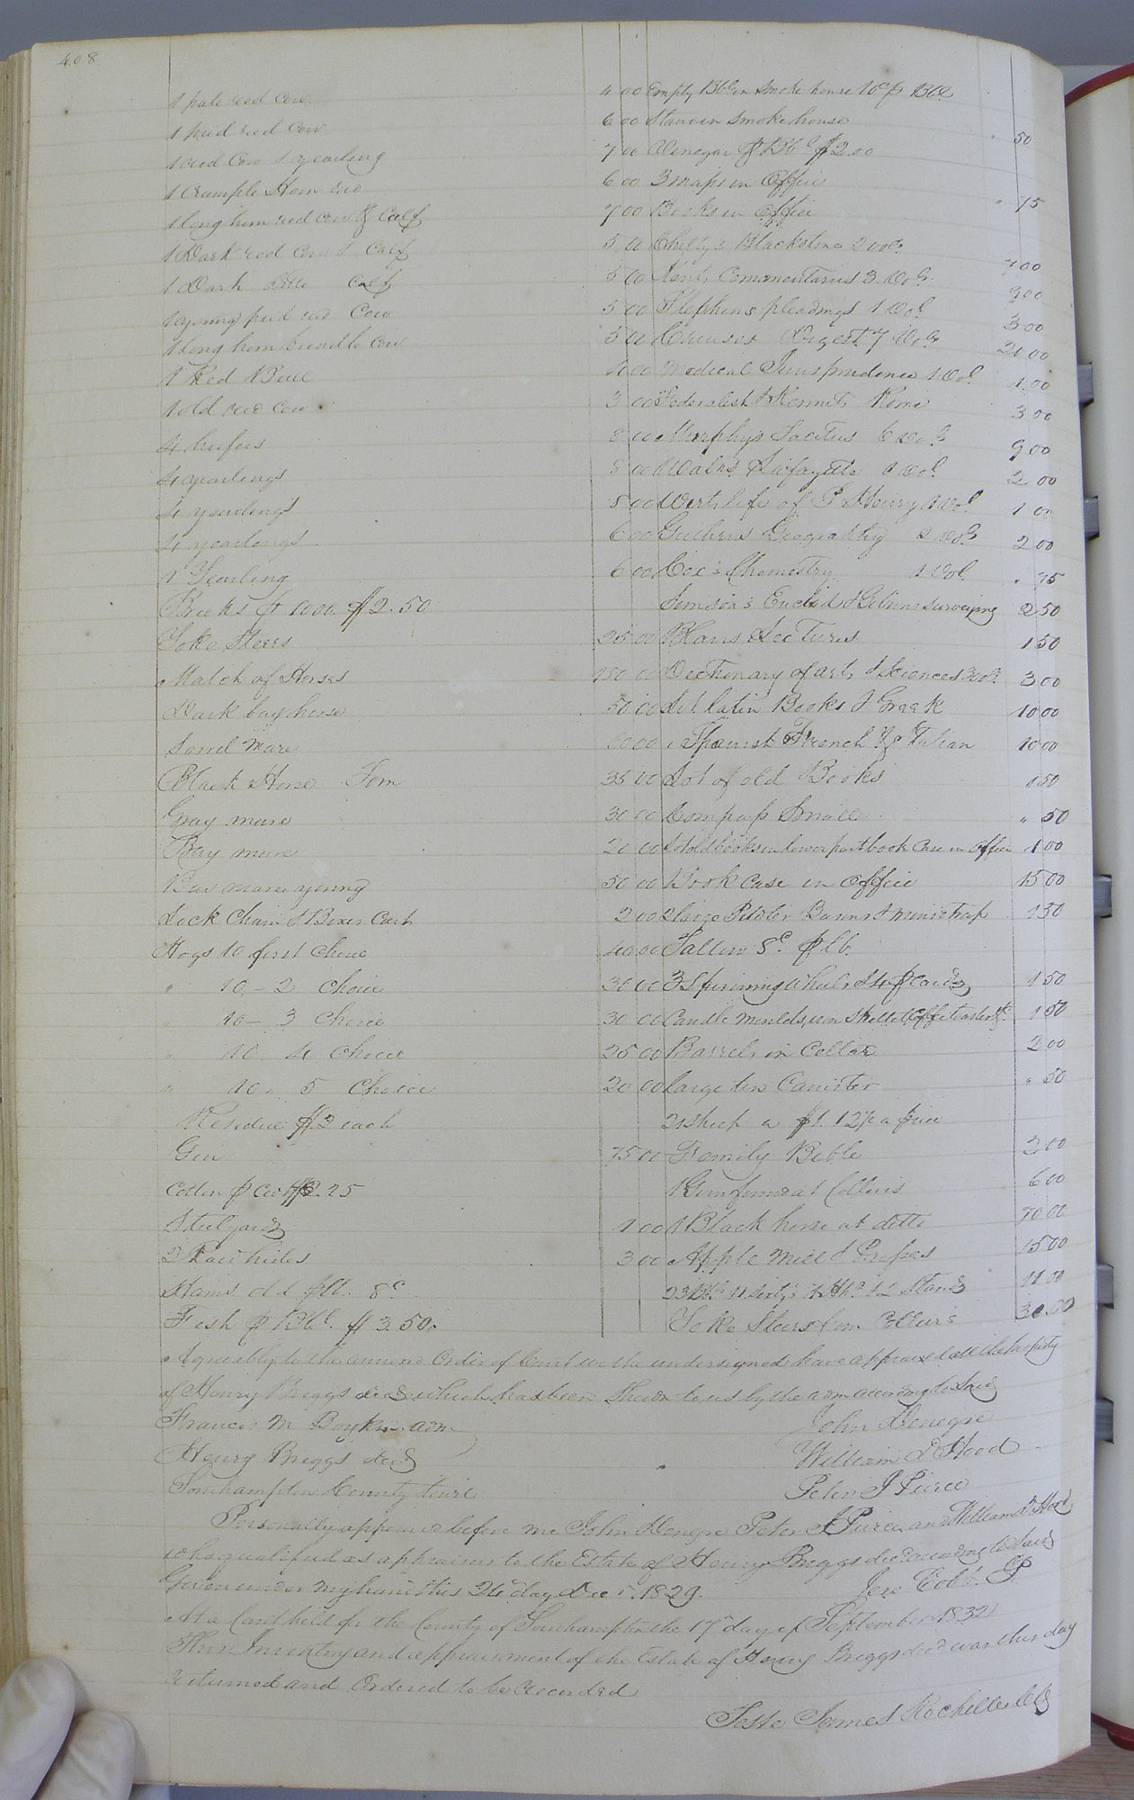 408
1 pale red Cow 4 00
1 pied red Cow 6 00
1 red Cow & yearling 7 00
1 Crumple Horn cow 6 00
1 long horn red cow & Calf 7 00
1 Dark red Cow & Calf 5 00
1 Dark ditto Calf 5 00
1 young pied red Cow 5 00
1 long horn brindle cow 5 00
1 Red Bull
1 old red cow 3 00
4 heifers 8 00
4 yearlings 8 00
4 yearlings 8 00
4 yearlings 6 00
1 Yearling 6 00
Bricks pr 1000 $2.50
Yoke Steers 25 00
Match of Horses 150 00
Dark bay horse 50 00
Sorrel Mare
Black Horse Tom 35 00
Gray mare 30 00
Bay mare 20 00
Bay mare young 50 00
Lock Chain & Boxes Cart 2 00
Hogs 10 first Choice 40 00
" 10 - 2 Choice 30 00
10 - 3 Choice 30 00
" 10 4 Choice 25 00
" 10 " 5 Choice 20 00
Residue $2 each
Gin 75 00
Cotton p Cwt $2.25
Steelyards 1 00
2 Raw hides 3 00
Hams old p lb. 8c
Fish p Bbl. $3.50
Empty Bbls in Smoke house 10c p Bbl
Stand in Smoke house " 50
Vinegar p Bbl $2.00
3 maps in Office " 75
Books in Office
Chitty's Blackstone 2 vols 7 00
Kents Commentaries 3 Vols 9 00
Stephens pleadings 1 Vol 3 00
Digest 7 Vols
Medical Jurisprudence 1 Vol 1 00
Federalist & Kennets Rome 3 00
Murphys Tacitus 6 vols 9 00
Lafayette Vol 2 00
Wirts life of P Henry 1 Vol 1 00
Geography 2 vols 2 00
Coxe's Chemistry 1 Vol " 75
Simson's Euclid & Gibsons Surveying 2 50
Blairs Lectures 1 50
Dictionary of arts & Sciences 3 vols 3 00
Lot latin Books & Greek 10 00
" Spanish French & Italian 10 00
Lot of old Books 1 50
Compass Small " 50
Lot old books in lower part book Case in office 1 00
Book Case in Office 15 00
2 large Pewter Basons & mouse trap 1 50
Tallow 8c p lb.
3 Spinning Wheels & 4 p Cards 1 50
Candle Moulds, iron Skillet, Coffee toaster &c 1 50
Barrels in Cellar 2 00
Large tin Canister " 50
21 Sheep a $1.12½ a piece
Family Bible 2 00
1 Gum at Colliers 6 00
1 Black horse at ditto 70 00
Apple Mill & Press 15 00
23 Bbls & 2 Stands 11 00
Yoke Steers from Colliers 30.00
Agreeably to the annexed Order of Court we the undersigned have appraised all the property
of Henry Briggs decd which has been shewn to us by the adm according to Law
Francis M Boykin adm John Denegre
Henry Briggs decd William D Hood
Southampton County towit Peter J Pierce
Personally appeared before me John Denegre Peter J Pierce and William D Hood
who qualified as appraisers to the Estate of Henry Briggs decd according to Law
Given under my hand this 24 day Decr. 1829. Jere Cobb J P
At a Court held for the County of Southampton the 17th day of September 1832
This Inventory and appraisement of the Estate of Henry Briggs decd was this day
returned and Ordered to be recorded
Teste James Rochelle Clk